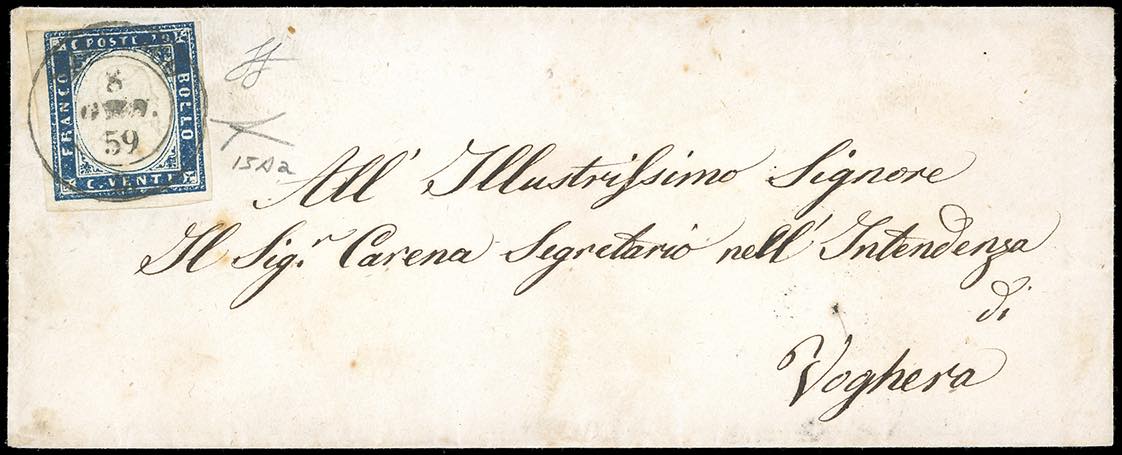 C. POSTE 20
FRANCO
BOLLO
C. VENTI
8
59
15Aa
All' Illustrissimo Signore
Il Sig.r Carena Segretario nell' Intendenza
di
Voghera